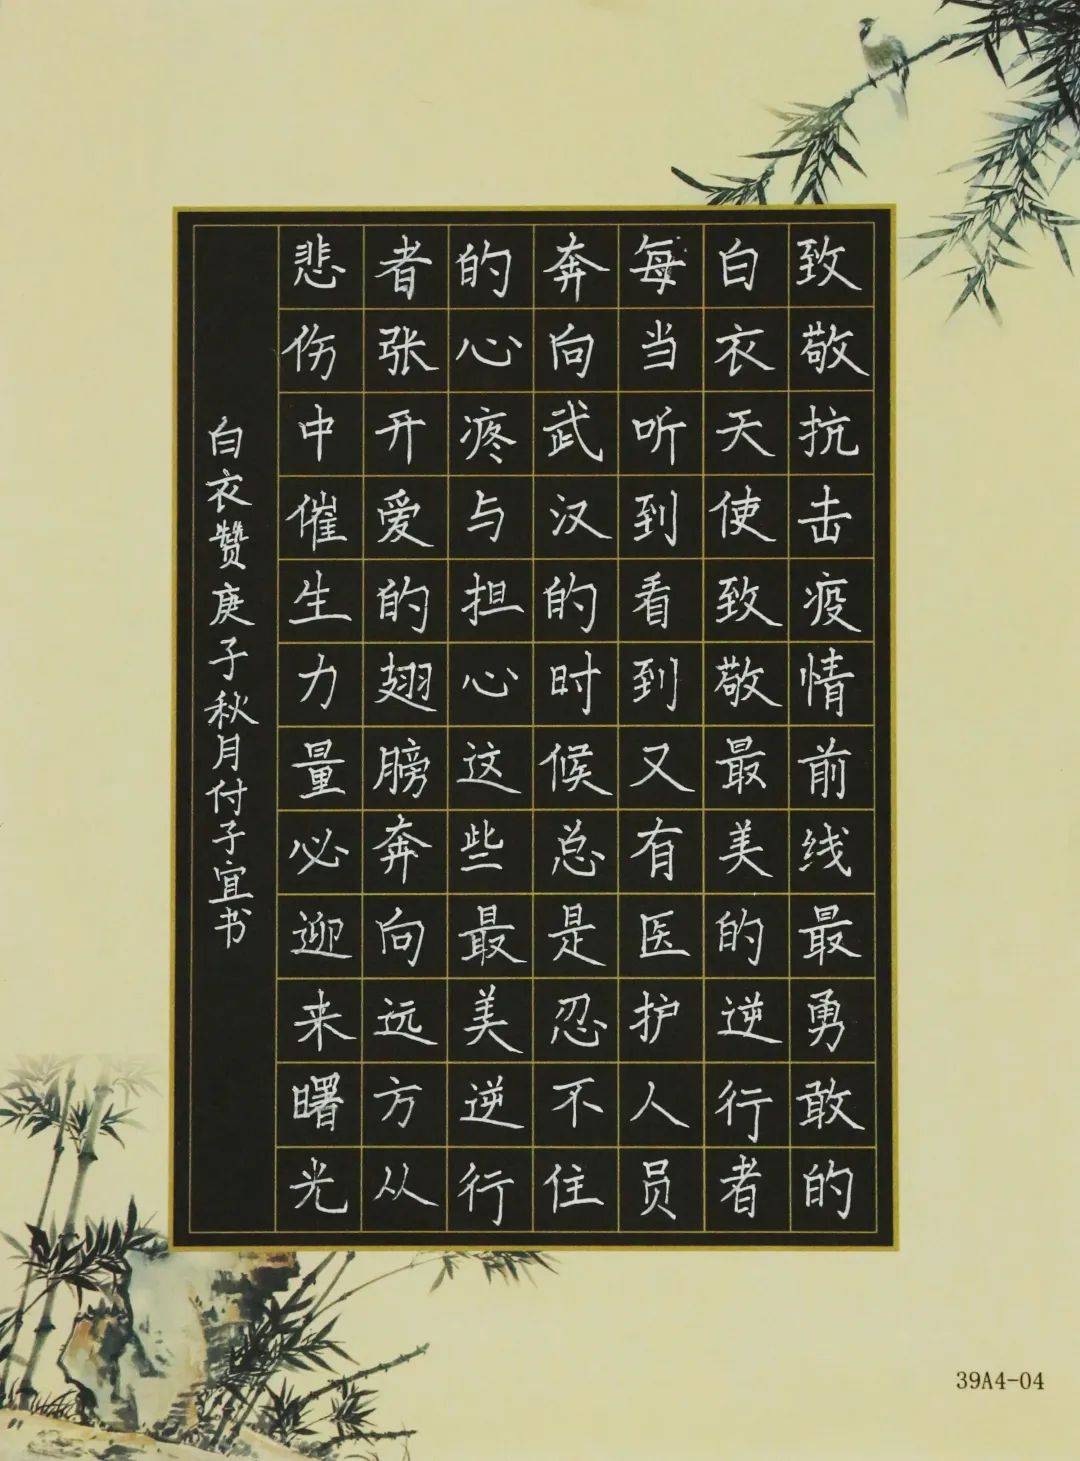 致敬抗击疫情前线最勇敢的
白衣天使致敬最美的逆行者
每当听到看到又有医护人员
奔向武汉的时候总是忍不住
的心疼与担心这些最美逆行
者张开爱的翅膀奔向远方从
悲伤中催生力量必迎来曙光
白衣赞庚子秋月付子宜书
39A4-04